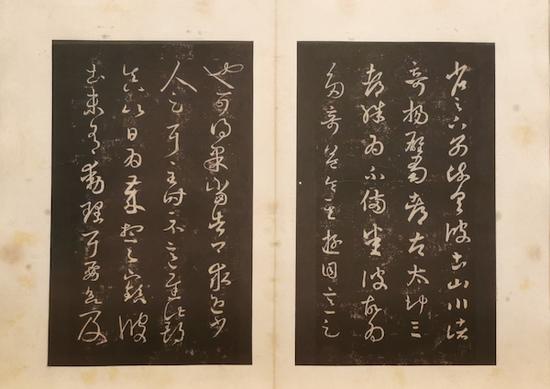 省足下別疏具彼土山川諸
奇揚雄蜀都左太沖三
都殊為不備悉彼故為
多奇益令其遊目意足
也可得果當告卿求迎少
人足耳至時示意遲此期
真以日為歲想足下鎮彼
土未有動理耳要欲及